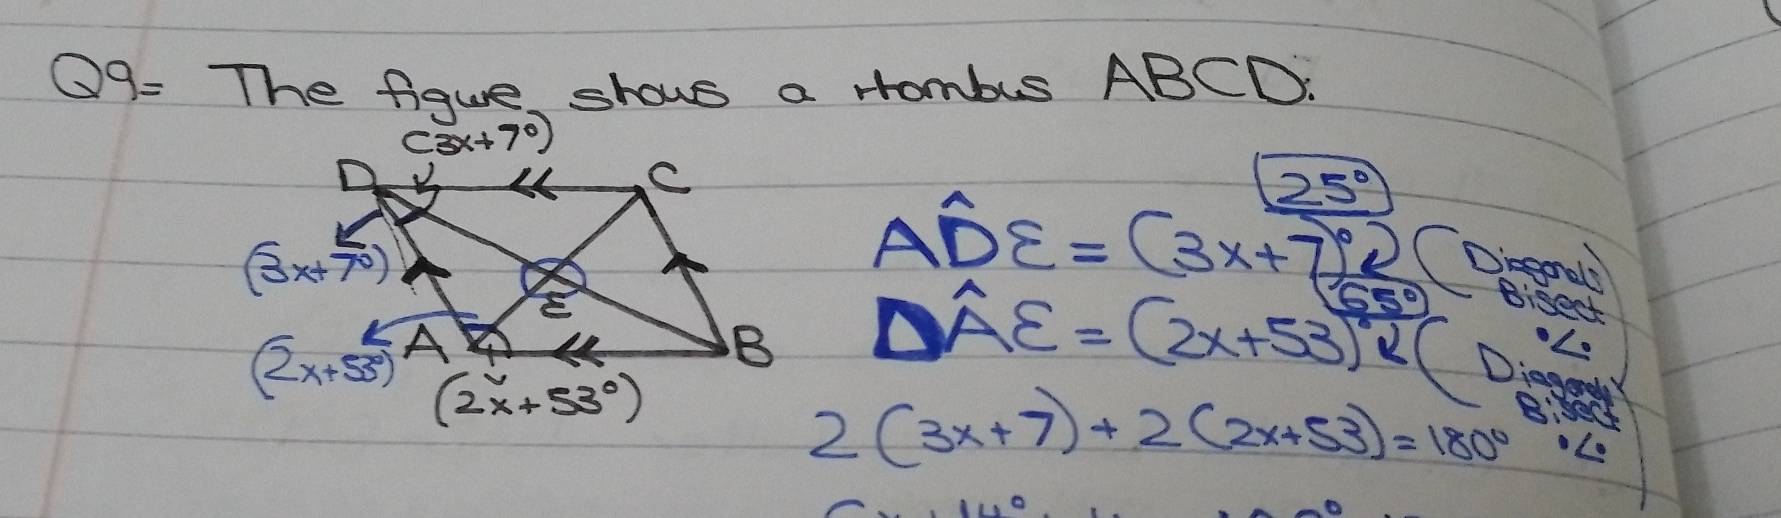 Q9= The figure shows a rhombus ABCD:
(3x+7°)
D
C
(3x+7°)
E
A
B
(2x+53°)
(2x+53°)
25°
AD̂E = (3x+7)° (Diagonals Bisect
65°
DÂE = (2x+53)° (Diagonals Bisect
2(3x+7)+2(2x+53)=180°